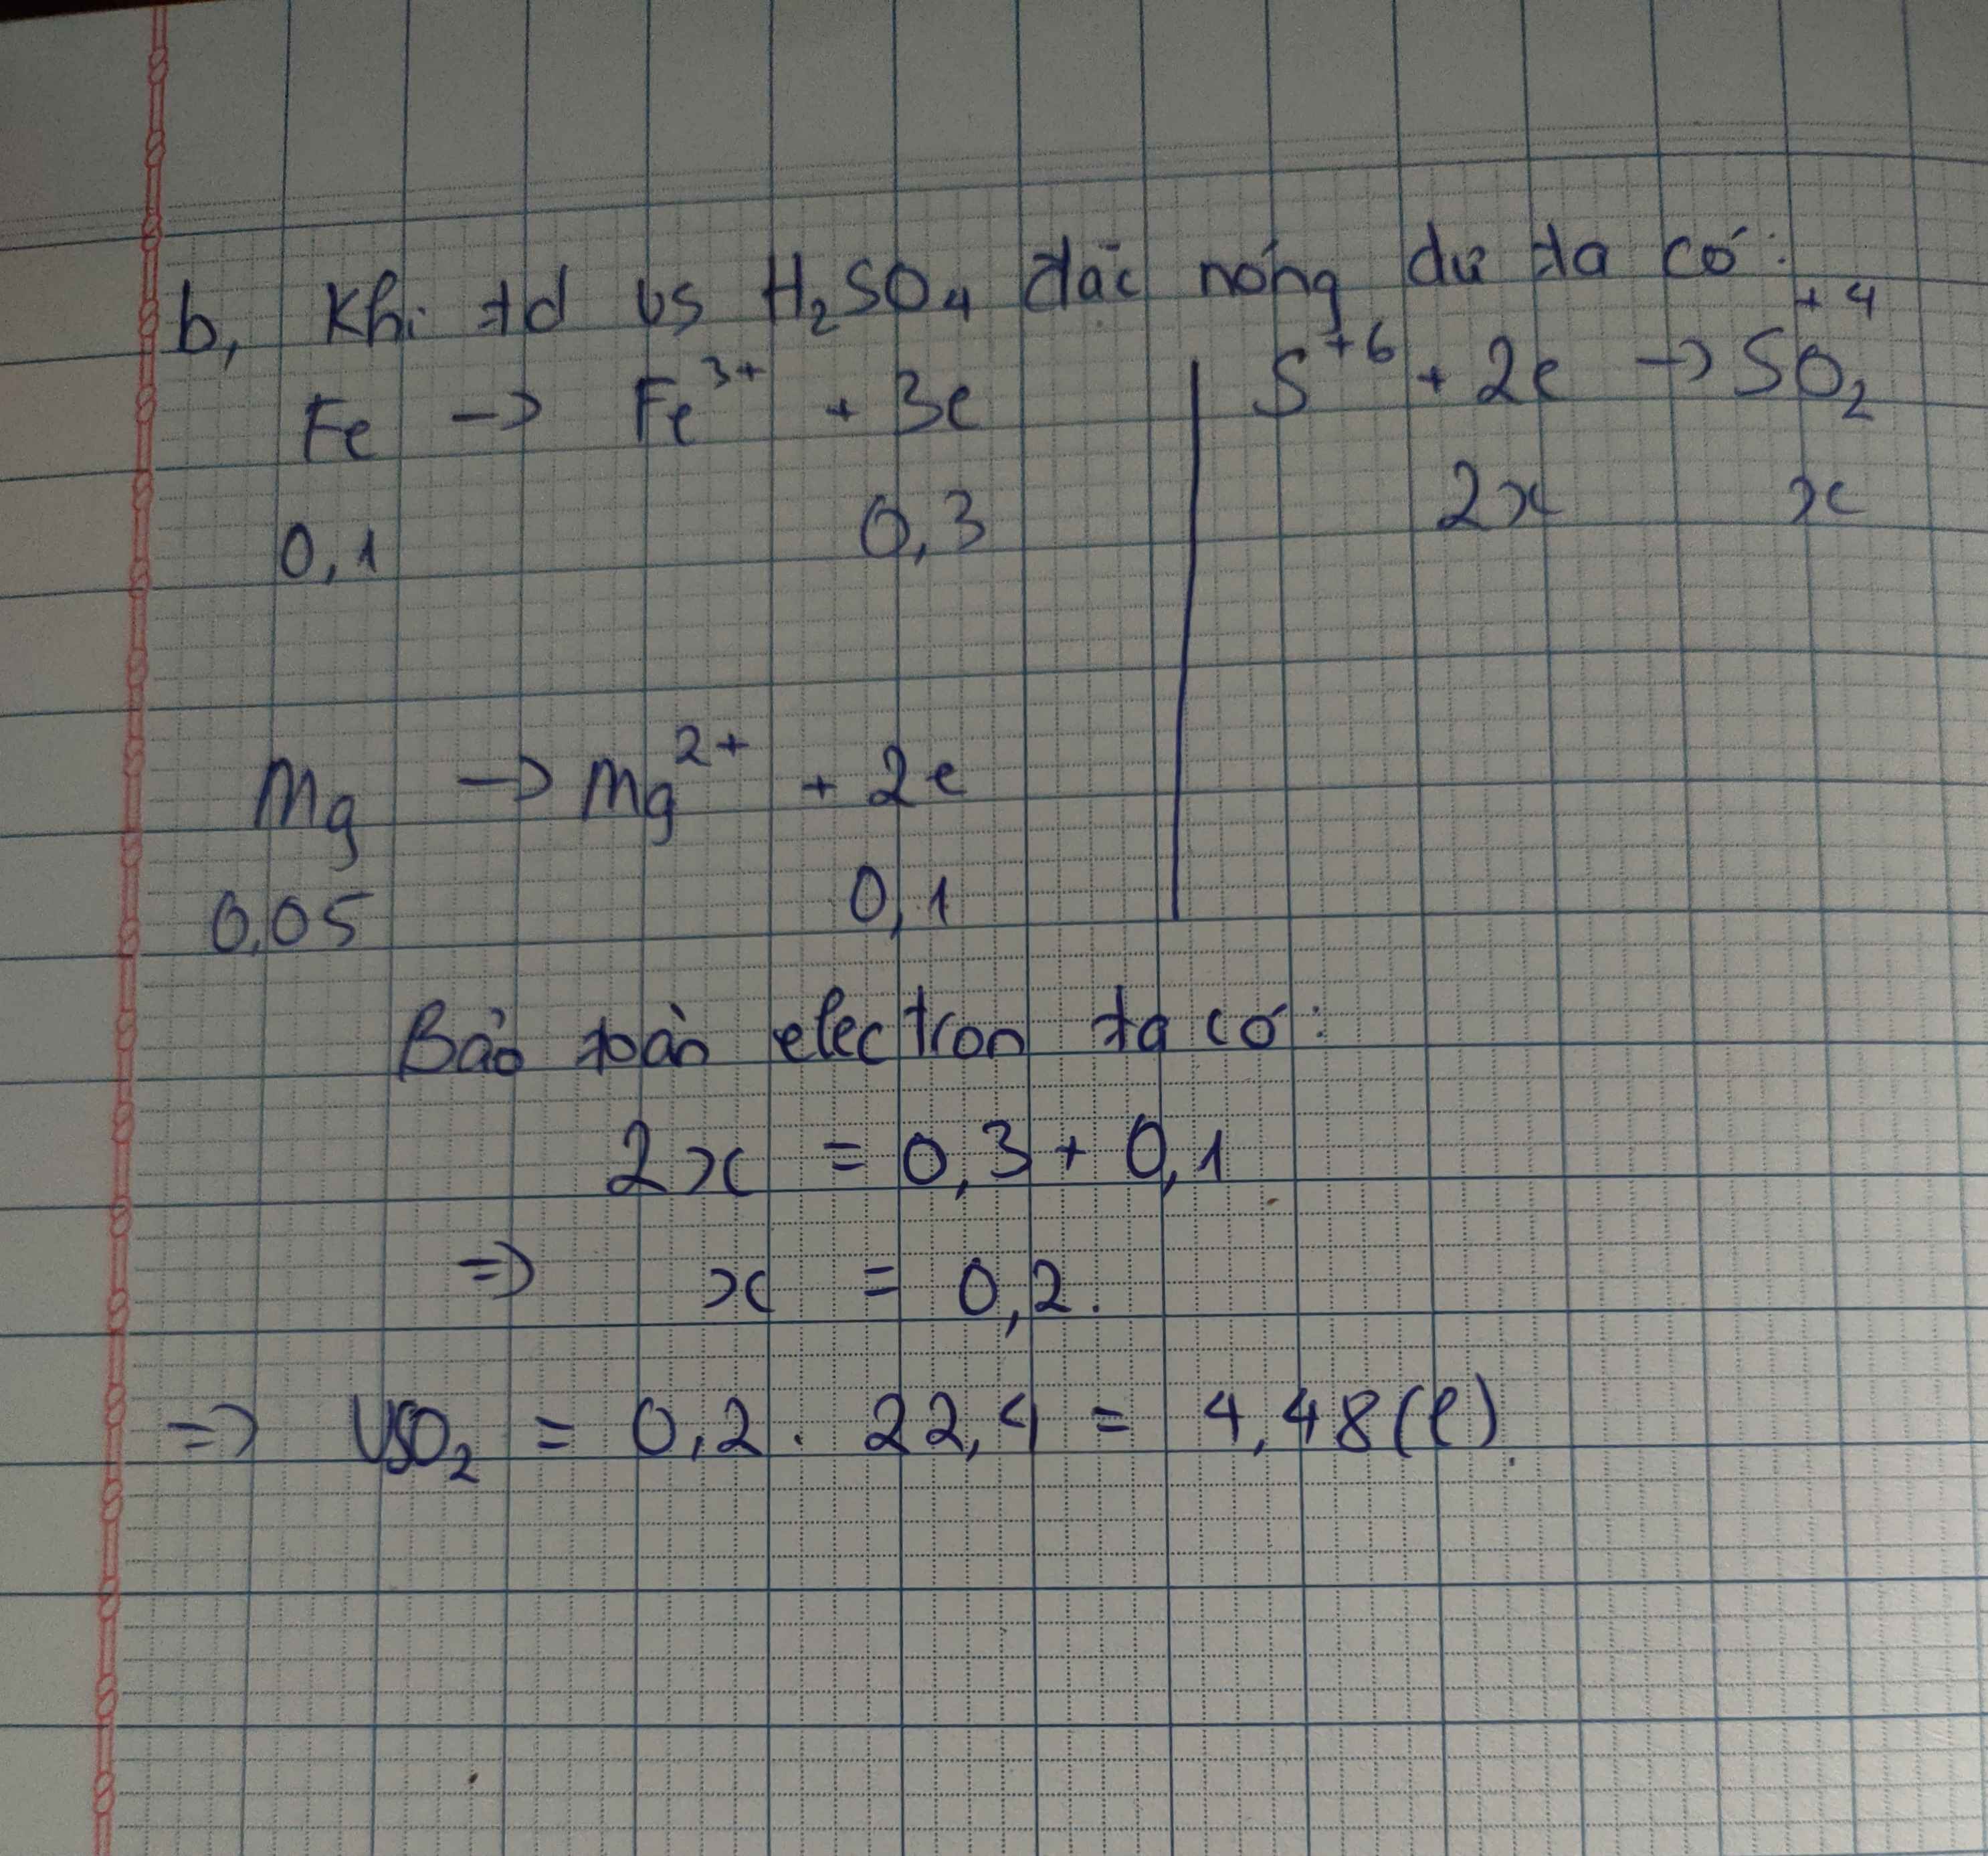 b, Khi td vs H₂SO₄ đặc nóng dư ta có:
Fe → Fe³⁺ + 3e | S⁺⁶ + 2e → SO₂⁺⁴
0,1 0,3 2x x
Mg → Mg²⁺ + 2e
0,05 0,1
Bảo toàn electron ta có:
2x = 0,3 + 0,1
=> x = 0,2.
=> VSO₂ = 0,2 . 22,4 = 4,48(l).